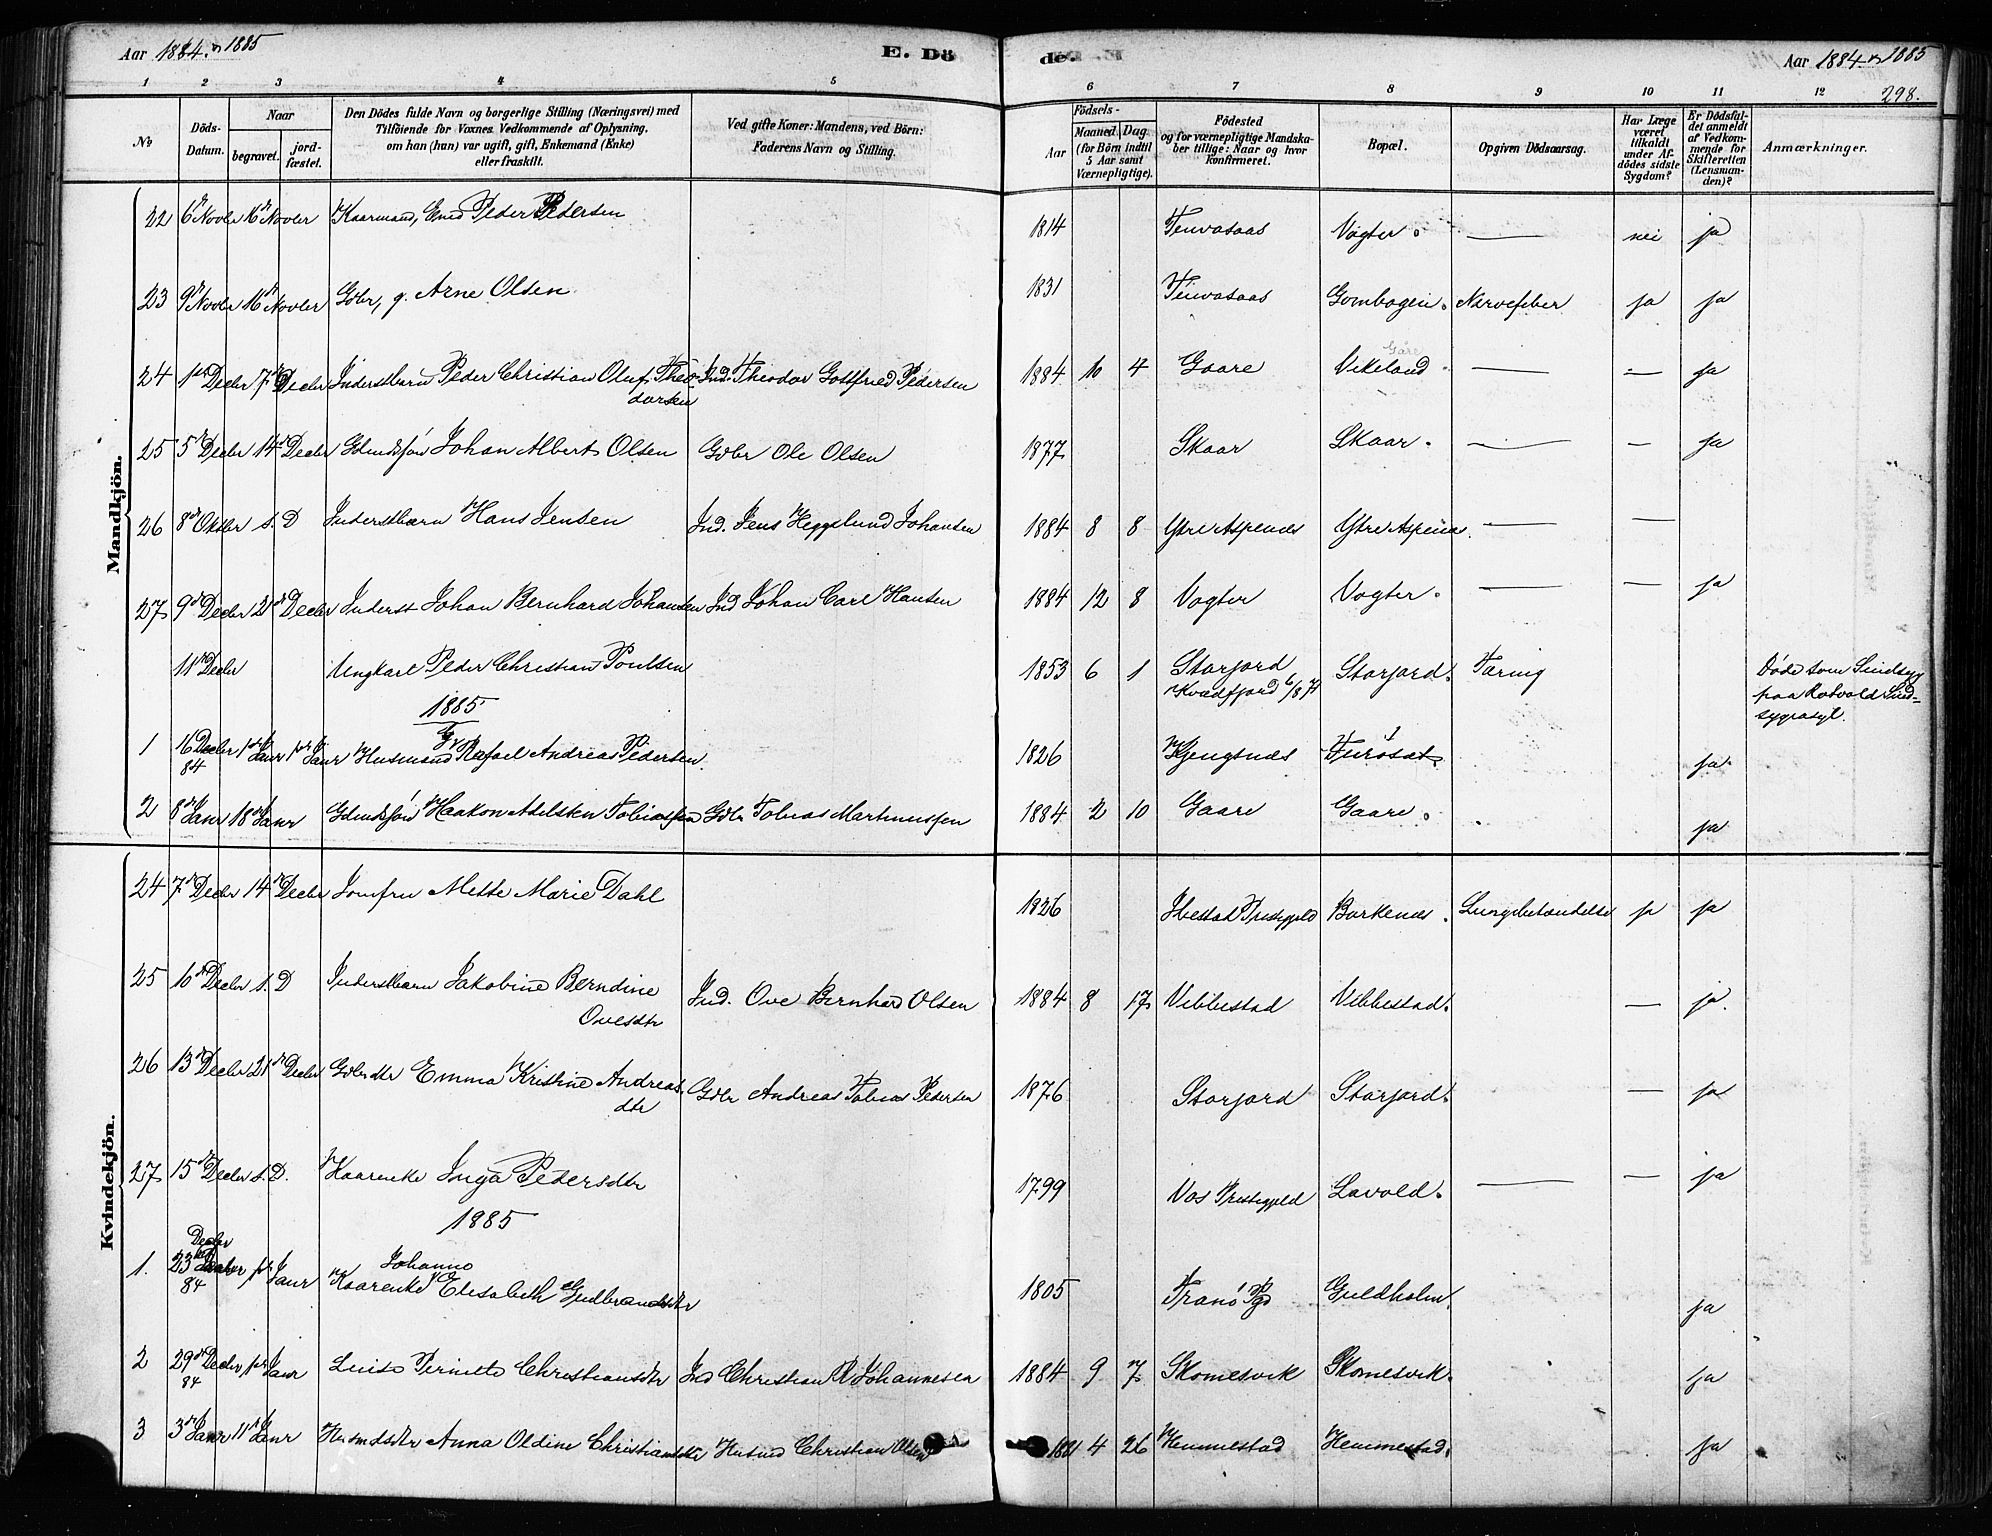 Aar 1884 & 1885
E. Dö
de.
Aar 1884 & 1885
298.
1 2 3 4 5 6 7 8 9 10 11 12
No
Döds-Datum.
Naar
begravet.
jord-fæstet.
Den Dödes fulde Navn og borgerlige Stilling (Næringsvei) med
Tilföiende for Voxnes Vedkommende af Oplysning,
om han (hun) var ugift, gift, Enkemand (Enke)
eller fraskilt.
Ved gifte Koner: Mandens, ved Börn:
Faderens Navn og Stilling.
Födsels-
Aar
Maaned. Dag.
(for Börn indtil
5 Aar samt
Værnepligtige).
Födested
og for værnepligtige Mandska-
ber tillige: Naar og hvor
konfirmeret.
Bopæl.
Opgiven Dödsaarsag.
Har Læge
været
tilkaldt
under Af-
dödes sidste
Sygdom?
Er Dödsfal-
det anmeldt
af Vedkom-
mende for
Skifteretten
(Lensman-
den)?
Anmærkninger.
Mandkjön.
22 6 Novbr 16 Novbr Kaarmand, Enkd Peder Pedersen 1814 Tenvasaas Vogter. — nei ja
23 9 Novbr 16 Novbr Gdbr, g. Arne Olsen 1831 Tenvasaas Gombogen. Nervefeber ja ja
Gåre
24 1ste Decbr 7 Decbr Inderstbarn Peder Christian Oluf Theo- Ind. Theodor Gottfried Pedersen 1884 10 4 Gaare Vikeland — — ja
dorsen
25 5 Decbr 14 Decbr Gdmdssön Johan Albert Olsen Gdbr Ole Olsen 1877 Skaar Skaar. — — ja
26 8 Oktbr s. D Inderstbarn Hans Jensen Ind. Jens Heggelund Johansen 1884 8 8 Ytre Aspenes Ytre Aspenes. — —
27 9 Decbr 21 Decbr Inderst Johan Bernhard Johansen Ind Johan Carl Hansen 1884 12 8 Vogter Vogter. — — ja
11 Decbr Ungkarl Peder Christian Poulsen 1853 6 1 Storjord Storjord. Tæring Döde som Sindsyg
Kvædfjord 6/8 71 paa Rotvold Sind-
sygeasyl.
1885
1 16 Decbr 1ste Janr 1ste Janr Husmand Rafael Andreas Pedersen. 1826 Kjengsnæs ja.
84
2 8 Janr 18 Janr Gdmdssön Haakon Adelsten Tobiassen Gdbr Tobias Martinussen 1884 2 10 Gaare Gaare. ja
Kvindekjön.
24 7 Decbr 14 Decbr Jomfru Mette Marie Dahl 1826 Ibestad Prestegjeld Borkenes. Lungebetændelse ja ja
25 10 Decbr s. D Inderstbarn Jakobine Berndine Ind. Ove Bernhard Olsen 1884 8 17 Vebbestad Vebbestad. — ja.
Ovesdtr
26 13 Decbr 21 Decbr Gdbrdtr Emma Kristine Andreas- Gdbr Andreas Tobias Pedersen 1876 Storjord Storjord. — ja
dtr
27 15 Decbr s. D. Kaarenke Inga Pedersdtr 1799 Vos Prestegjeld Lavold. — — ja
1885
Decbr Johanna
1. 23 Janr Kaarenke Elisabeth Gudbrandsdtr 1805 Tranö Pgd Guldholm. ja
84
2 29 Decbr Janr Luise Pernette Christiansdtr Ind Christian R Johannesen 1884 9 7 Skomesvik Skomesvik. ja
84
3 3 Janr 11 Janr Husmdsdtr Anna Oldine Christiansdtr Husmd Christian Olsen 4 26 Hemmestad Hemmestad. ja